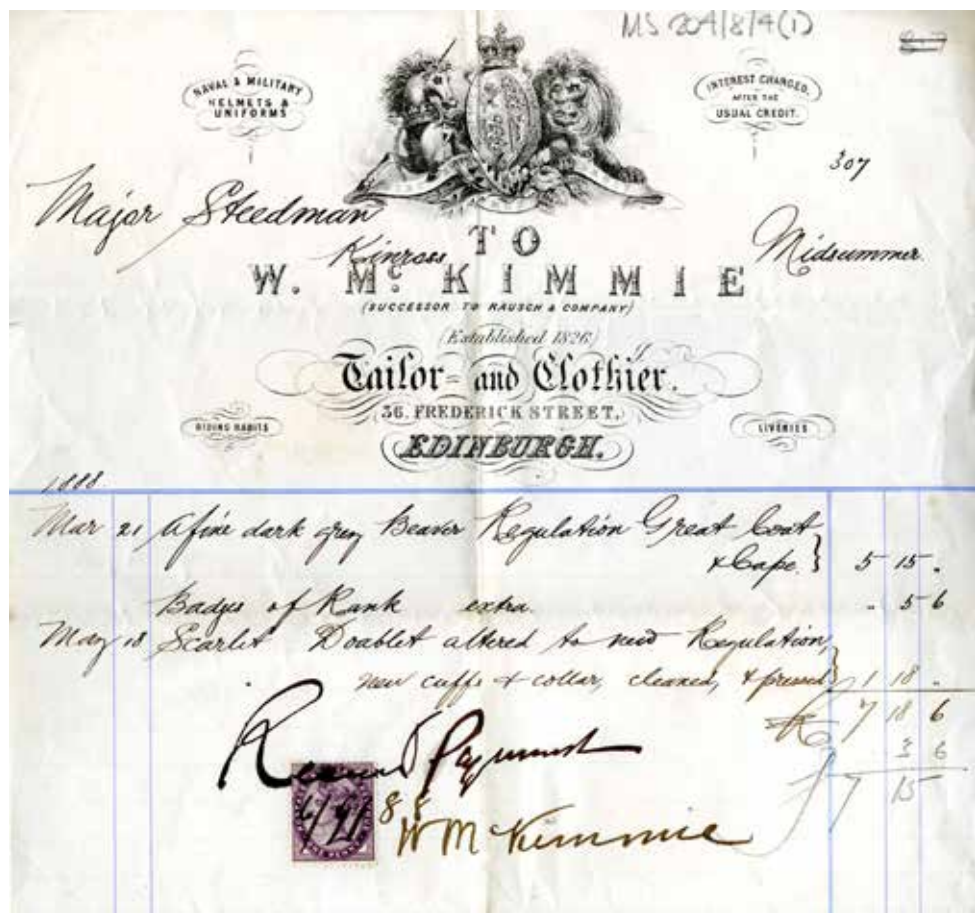 MS 204/8/4(1)
NAVAL & MILITARY
HELMETS &
UNIFORMS
INTEREST CHARGED.
AFTER THE
USUAL CREDIT.
307
Major Steedman
Kinross
Midsummer
TO
W. Mc. KIMMIE
(SUCCESSOR TO RAUSCH & COMPANY)
(Established 1826)
Tailor- and Clothier.
36, FREDERICK STREET,
RIDING HABITS
LIVERIES
EDINBURGH.
1888
Mar 21 A fine dark grey Beaver Regulation Great Coat
& Cape. } 5 15 .
Badges of Rank extra . 5 6
May 18 Scarlet Doublet altered to new Regulation,
new cuffs & collar, cleaned, & pressed } 1 18 .
7 18 6
3 6
7 15
Received Payment
88
W McKimmie
ONE PENNY